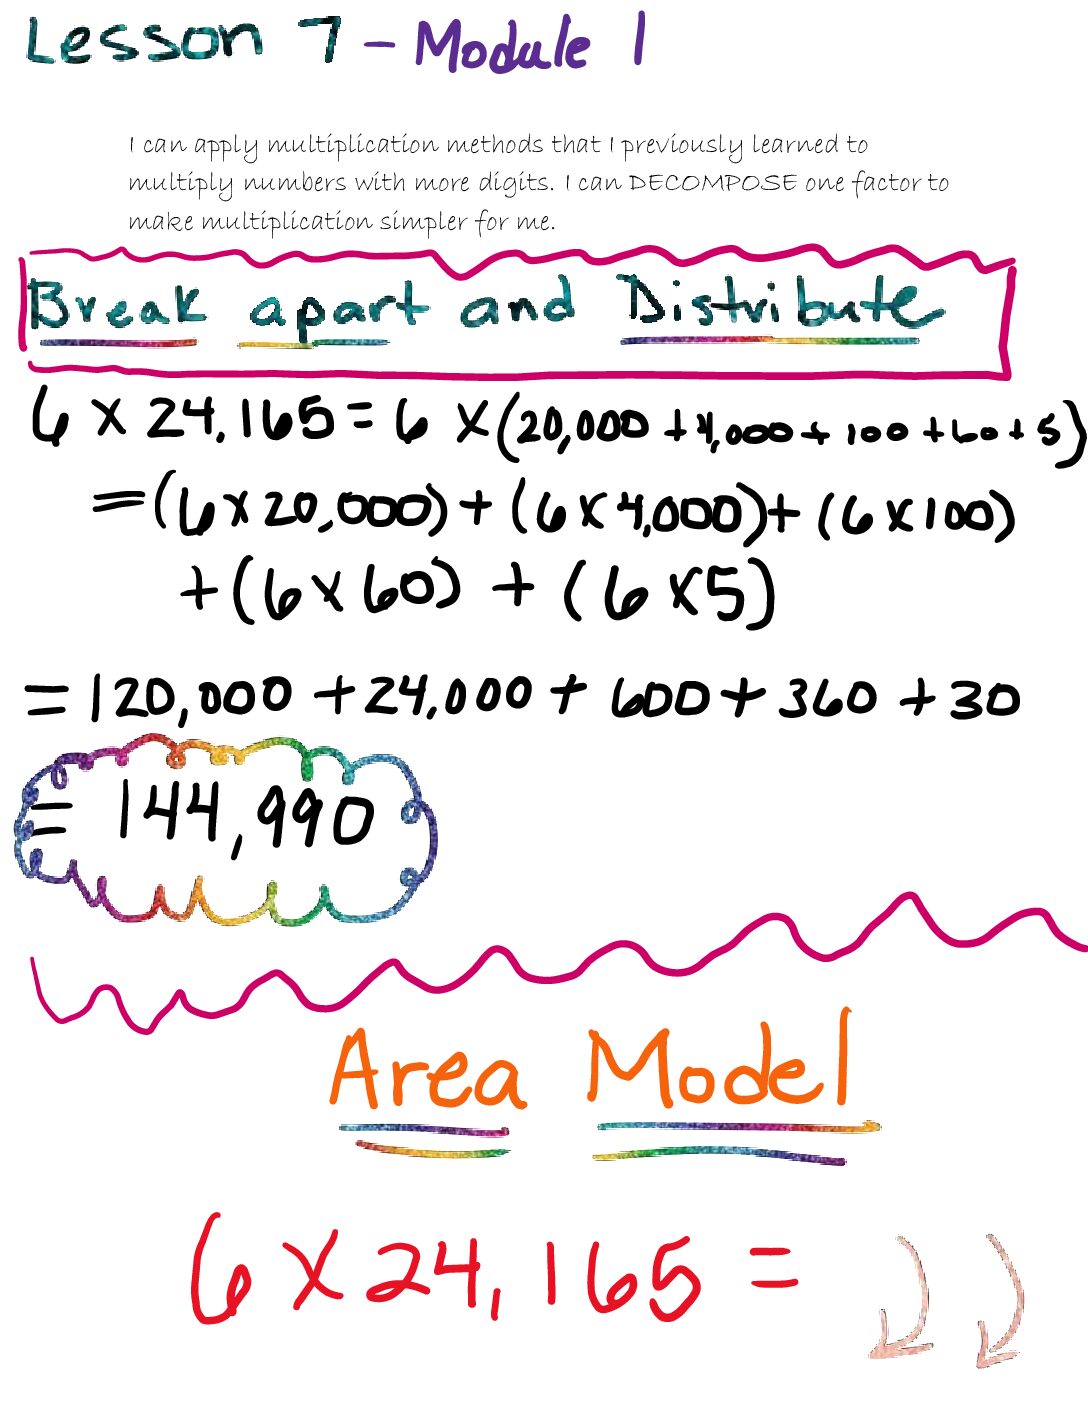 Lesson 7 - Module 1
I can apply multiplication methods that I previously learned to
multiply numbers with more digits. I can DECOMPOSE one factor to
make multiplication simpler for me.
Break apart and Distribute
6 x 24,165 = 6 x (20,000 + 4,000 + 100 + 60 + 5)
= (6 x 20,000) + (6 x 4,000) + (6 x 100)
+ (6 x 60) + (6 x 5)
= 120,000 + 24,000 + 600 + 360 + 30
= 144,990
Area Model
6 x 24,165 =